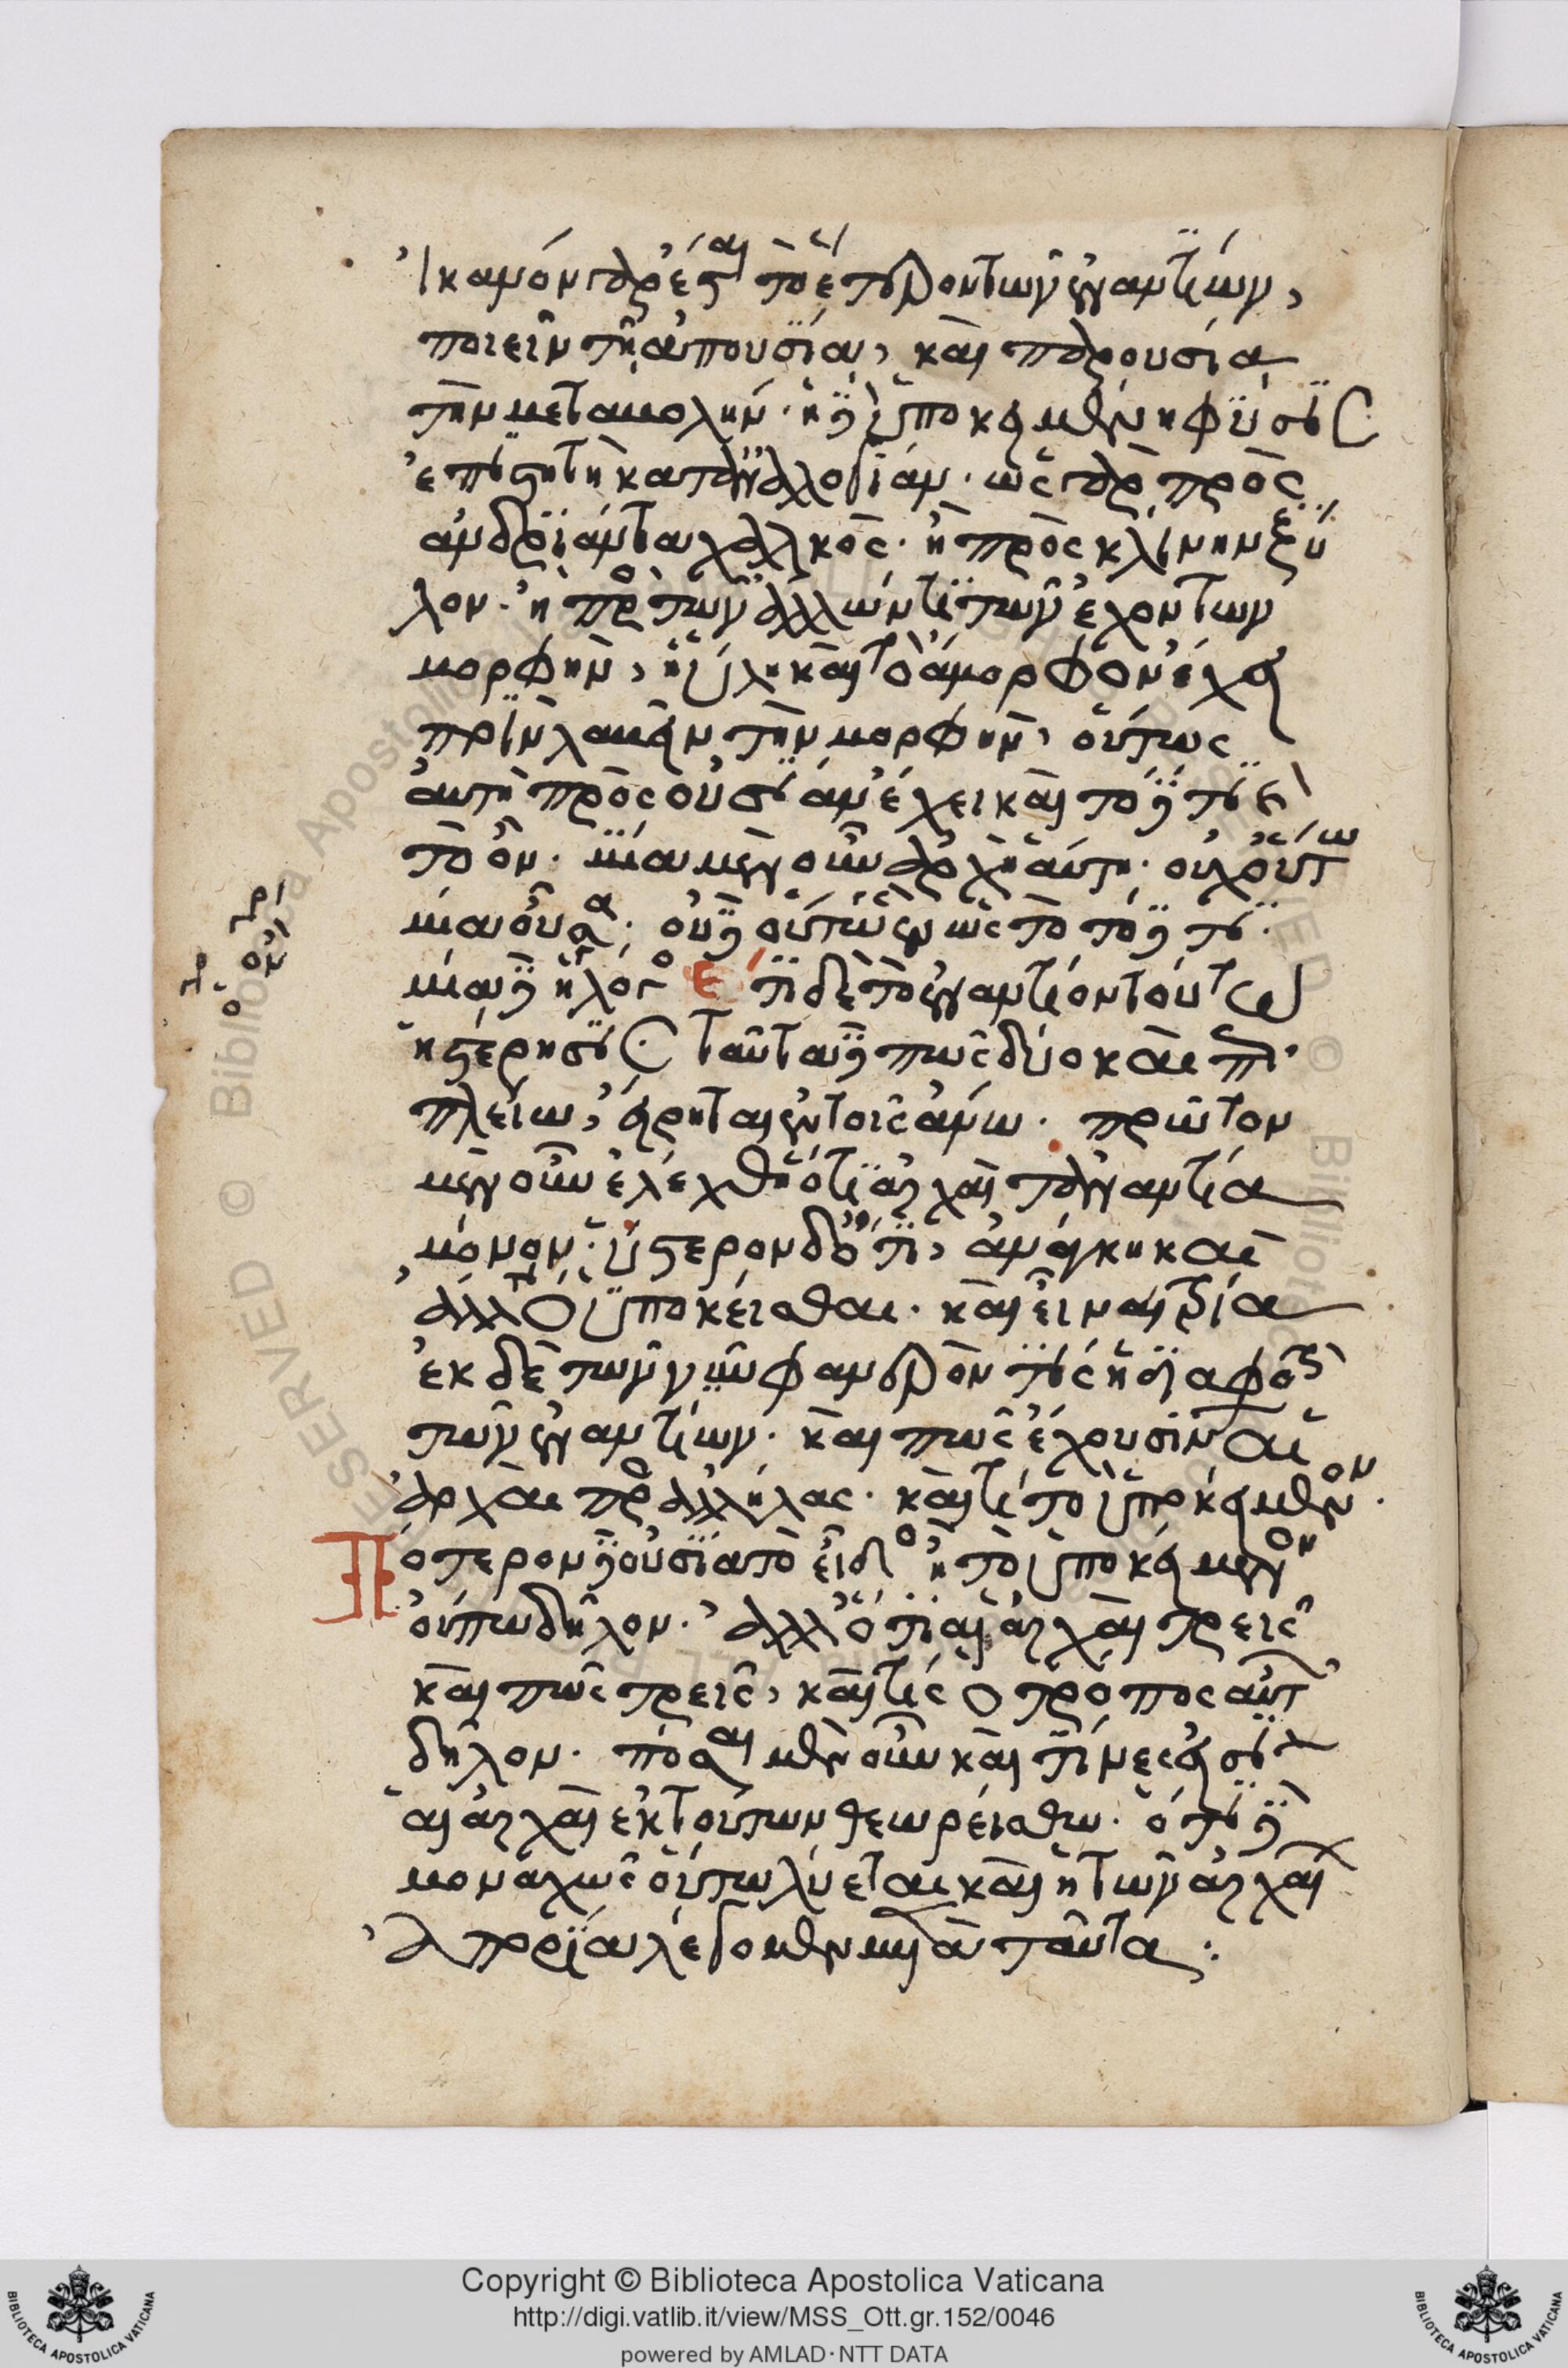 ἱκανὸν γὰρ ἔσται τὸ ἕτερον τῶν ἐναντίων,
ποιεῖν τῇ ἀπουσίᾳ, καὶ παρουσίᾳ
τὴν μεταβολήν. ἡ δ' ὑποκειμένη φύσις
ἐπιστητὴ κατ' ἀναλογίαν. ὡς γὰρ πρὸς
ἀνδριάντα χαλκὸς. ἢ πρὸς κλίνην ξύ
λον. ἢ πρὸς τῶν ἄλλων τι τῶν ἐχόντων
μορφὴν, ἡ ὕλη καὶ τὸ ἄμορφον ἔχει
πρὶν λαβεῖν τὴν μορφὴν, οὕτως
αὕτη πρὸς οὐσίαν ἔχει καὶ τὸ τόδε τι καὶ
τὸ ὄν. μία μὲν οὖν ἀρχὴ αὕτη. οὐχ οὕτω
μία οὖσα. οὐδὲ οὕτως ἓν ὡς τὸ τόδε τι.
μία δὲ ἡ λόγος ἔτι δὲ τὸ ἐναντίον τούτῳ
ἡ στέρησις ταῦτα δὲ πῶς δύο καὶ π
πλείω, εἴρηται ἐν τοῖς ἄνω. πρῶτον
μὲν οὖν ἐλέχθη ὅτι ἀρχαὶ τἀναντία
μόνον. ὕστερον δ' ὅτι, ἀνάγκη καὶ
ἄλλο τι ὑποκεῖσθαι. καὶ εἶναι τρία
ἐκ δὲ τῶν νῦν φανερὸν τίς ἡ διαφορὰ
τῶν ἐναντίων. καὶ πῶς ἔχουσιν αἱ
ἀρχαὶ πρὸς ἀλλήλας. καὶ τί τὸ ὑποκείμενον.
Πότερον δὲ οὐσία τὸ εἶδος ἢ τὸ ὑποκείμενον
οὔπω δῆλον. ἀλλ' ὅτι αἱ ἀρχαὶ τρεῖς
καὶ πῶς τρεῖς, καὶ τίς ὁ τρόπος αὐτῶν
δῆλον. πόσαι μὲν οὖν καὶ τίνες εἰσὶν
αἱ ἀρχαὶ ἐκ τούτων θεωρείσθω. ὅτι δὲ
μοναχῶς οὕτω λύεται καὶ ἡ τῶν ἀρχαίων
ἀπορία λέγομεν μετὰ ταῦτα: